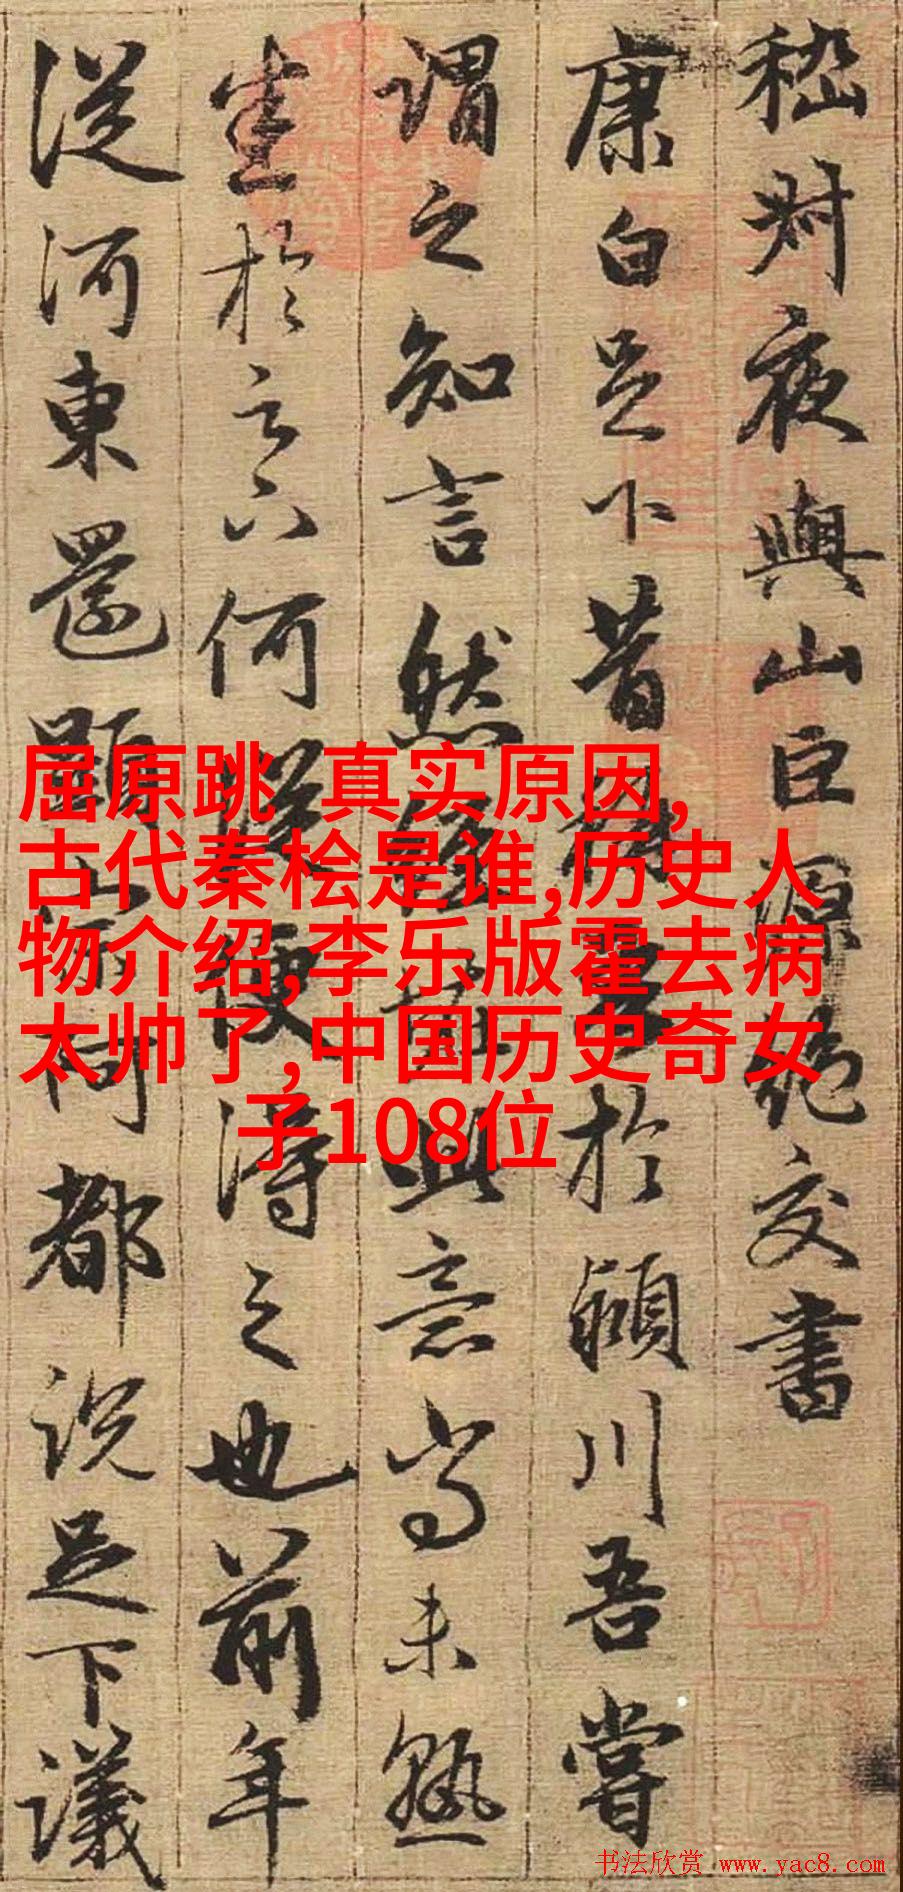 嵇叔夜與山巨源絶交書
康白足下昔稱吾於潁川吾嘗
謂之知言然經怪此意尚未熟
悉於足下何從便得之也前年
從河東還顯宗阿都説足下議
屈原跳 真实原因,
古代秦桧是谁,历史人
物介绍,李乐版霍去病
太帅了,中国历史奇女
子108位
书法欣赏 www.yac8.com